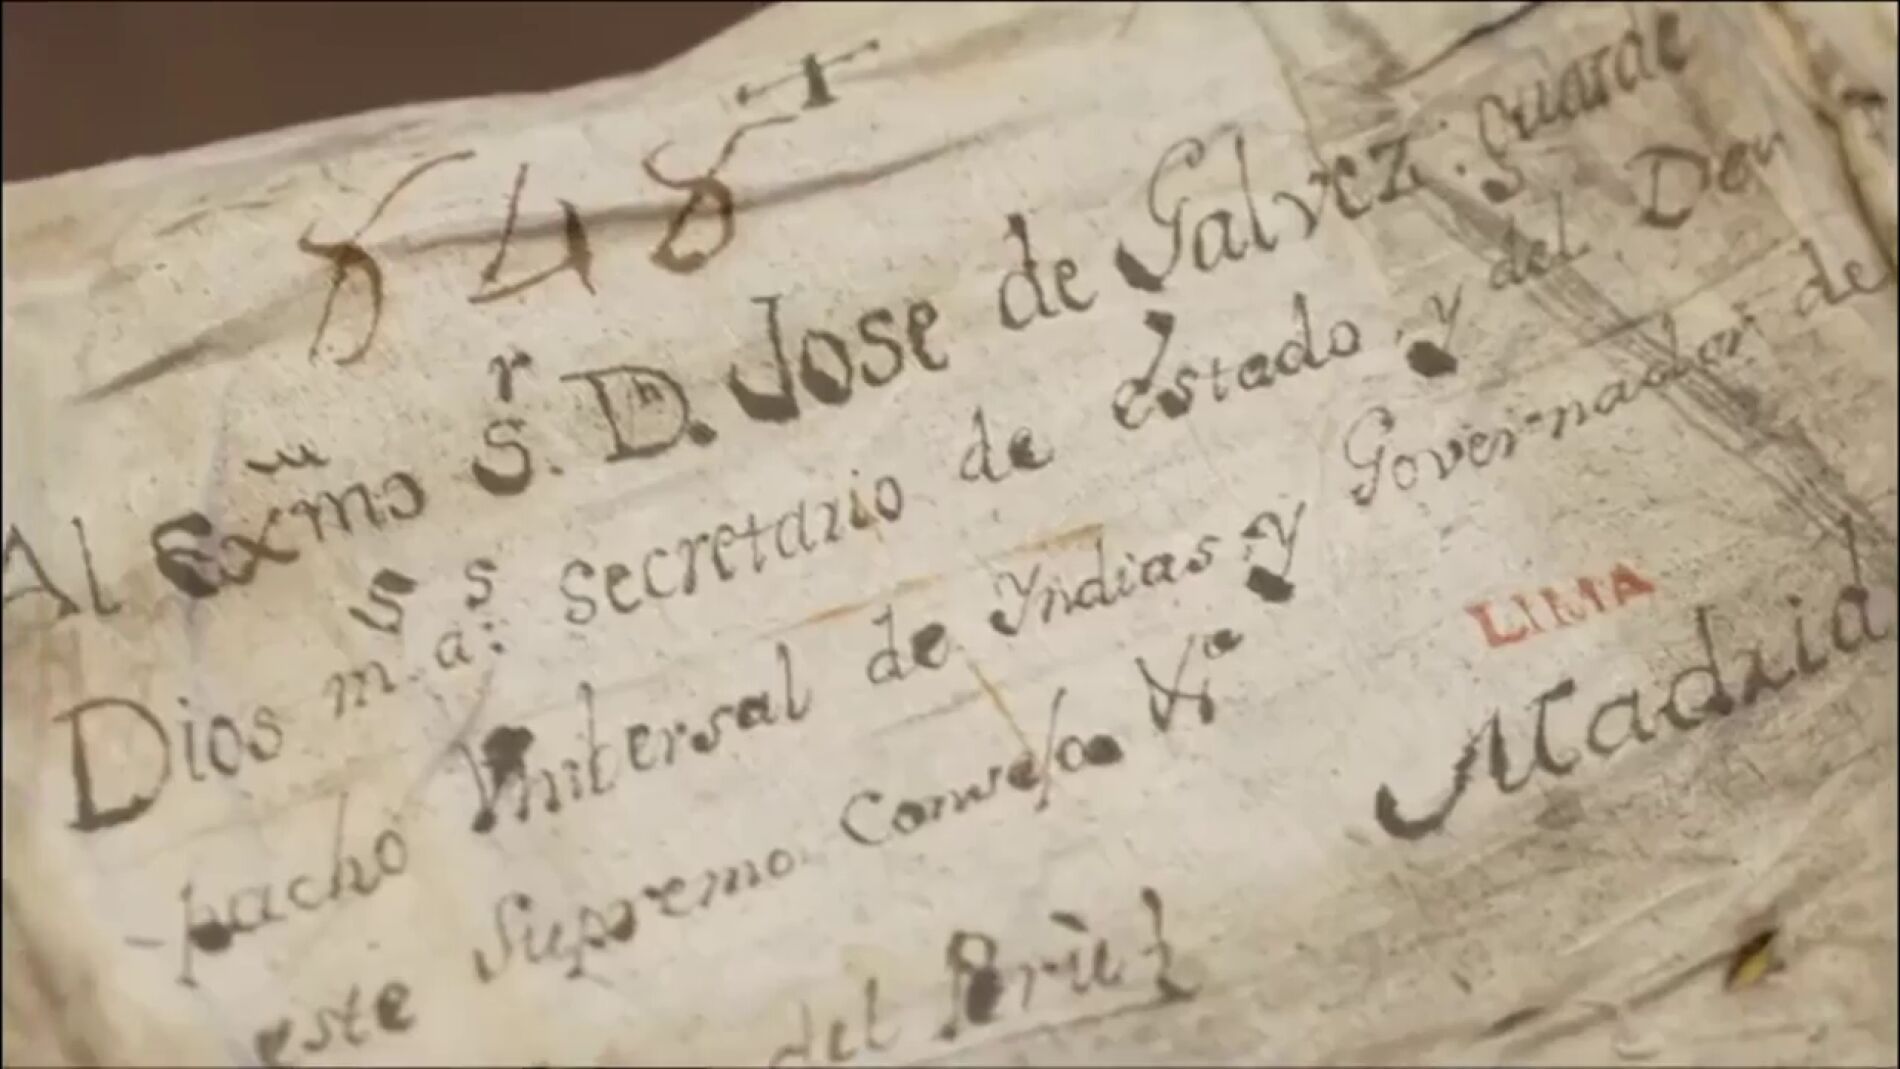 848
Al Exmo Sr. Dn. Jose de Galvez. guarde
Dios ms. as: secretario de estado, y del Des
-pacho Vniversal de Yndias, y Governador de
este Supremo Consejo
LIMA
Madrid
del